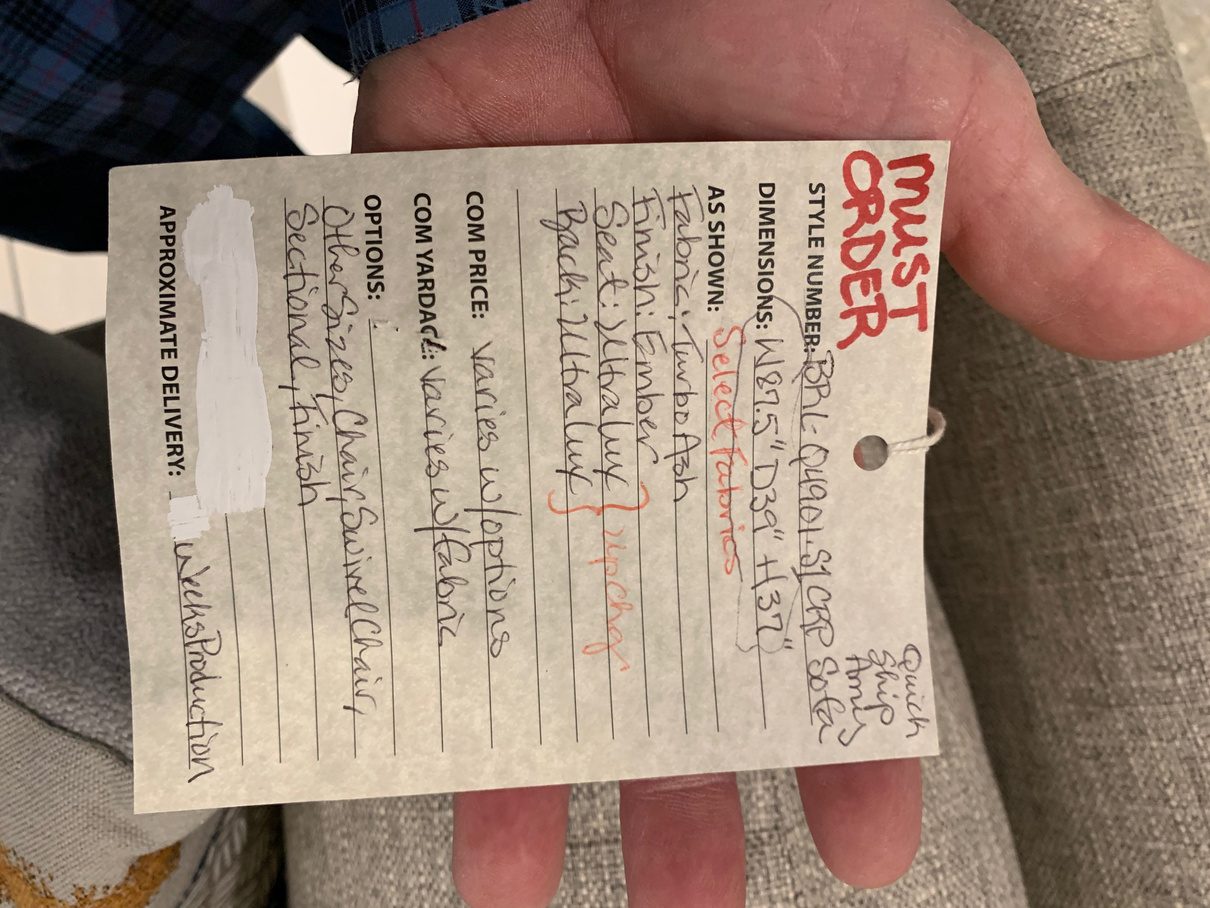 MUST
ORDER
Quick
Ship
Arms
STYLE NUMBER: BRL-Q4901.S1CRP Sofa
DIMENSIONS: W87.5" D39" H37"
AS SHOWN: Select Fabrics
Fabric: Turbo Ash
Finish: Ember
Seat: Ultra Lux } upchg
Back: Ultra Lux
COM PRICE: Varies w/options
COM YARDAGE: Varies w/fabric
OPTIONS:
Other Sizes, Chair, Swivel Chair,
Sectional, Finish
APPROXIMATE DELIVERY: Weeks Production